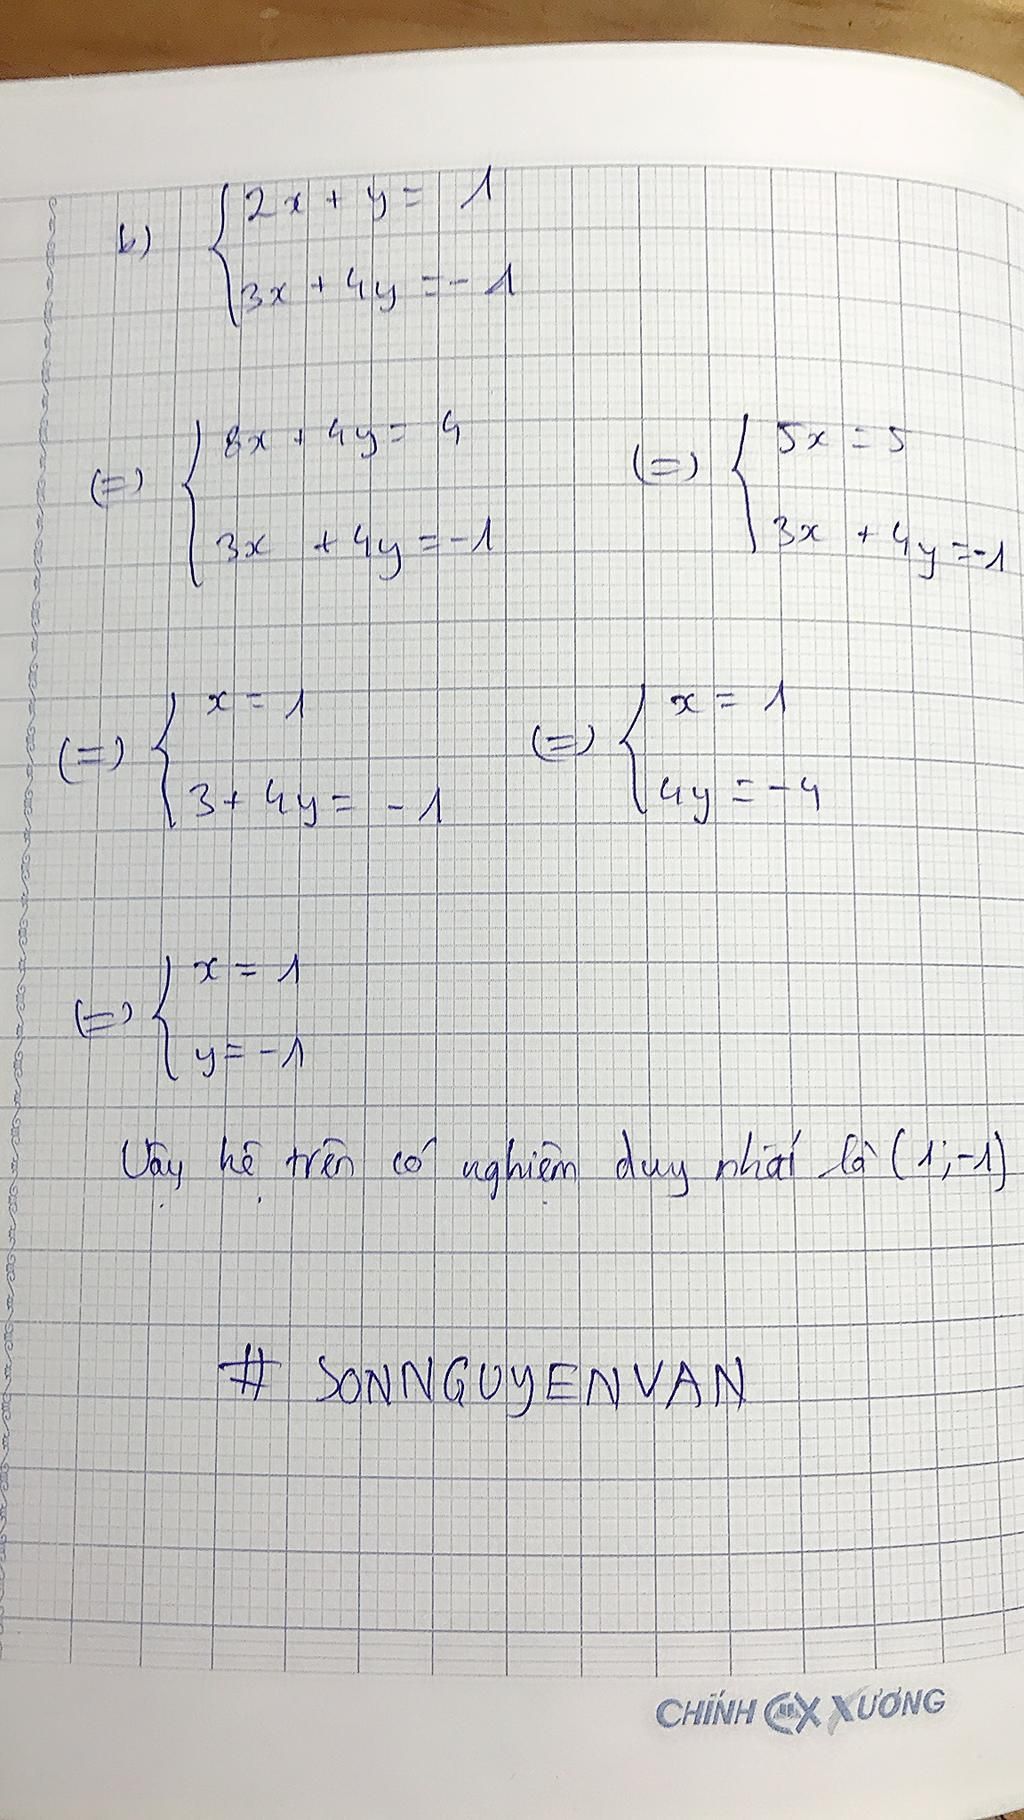 b) { 2x + y = 1
3x + 4y = -1
(=) { 8x + 4y = 4
3x + 4y = -1
(=) { 5x = 5
3x + 4y = -1
(=) { x = 1
3 + 4y = -1
(=) { x = 1
4y = -4
(=) { x = 1
y = -1
Vậy hệ trên có nghiệm duy nhất là (1; -1)
# SONNGUYENVAN
CHÍNH CX XƯƠNG